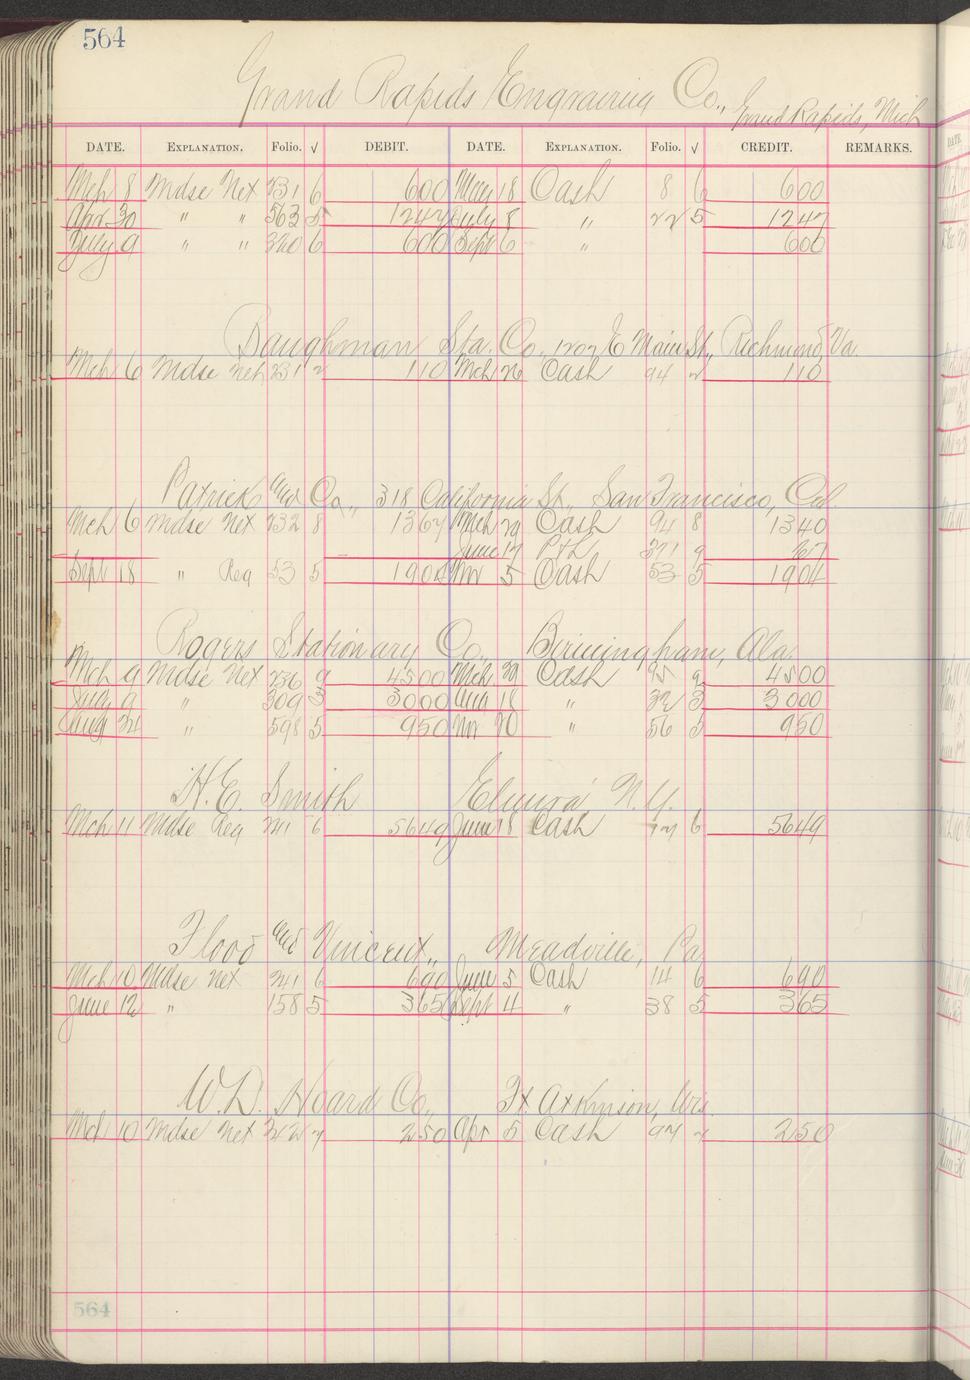 564
Grand Rapids Engraving Co., Grand Rapids, Mich
DATE. EXPLANATION. Folio. √ DEBIT. DATE. EXPLANATION. Folio. √ CREDIT. REMARKS.
Mch 8 Mdse Net 231 6 600 May 18 Cash 8 6 600
Apr. 30 " " 563 5 1247 July 8 " 22 5 1247
July 9 " " 320 6 600 Sept 6 " 600
Baughman Sta. Co., 1202 E Main St., Richmond, Va.
Mch 6 Mdse Net 231 2 110 Mch 26 Cash 94 2 110
Patrick and Co., 318 California St., San Francisco, Cal.
Mch 6 Mdse Net 232 8 1367 Mch 29 Cash 94 8 1340
June 17 P&L 271 9 27
Sept 18 " Reg 53 5 1904 Nov 5 Cash 53 5 1904
Rogers Stationary Co., Birmingham, Ala.
Mch 9 Mdse Net 236 9 4500 Mch 29 Cash 95 9 4500
July 9 " 309 3 3000 Aug 18 " 32 3 3000
Aug 24 " 598 5 950 Nov 20 " 56 5 950
H.E. Smith Elmira, N.Y.
Mch 11 Mdse Reg 241 6 5649 June 18 Cash 17 6 5649
Flood and Vincent., Meadville, Pa
Mch 10 Mdse Net 241 6 690 June 5 Cash 14 6 690
June 12 " 158 5 365 Sept 4 " 38 5 365
W.D. Hoard Co., Ft. Atkinson, Wis.
Mch 10 Mdse Net 242 7 250 Apr 5 Cash 97 7 250
564